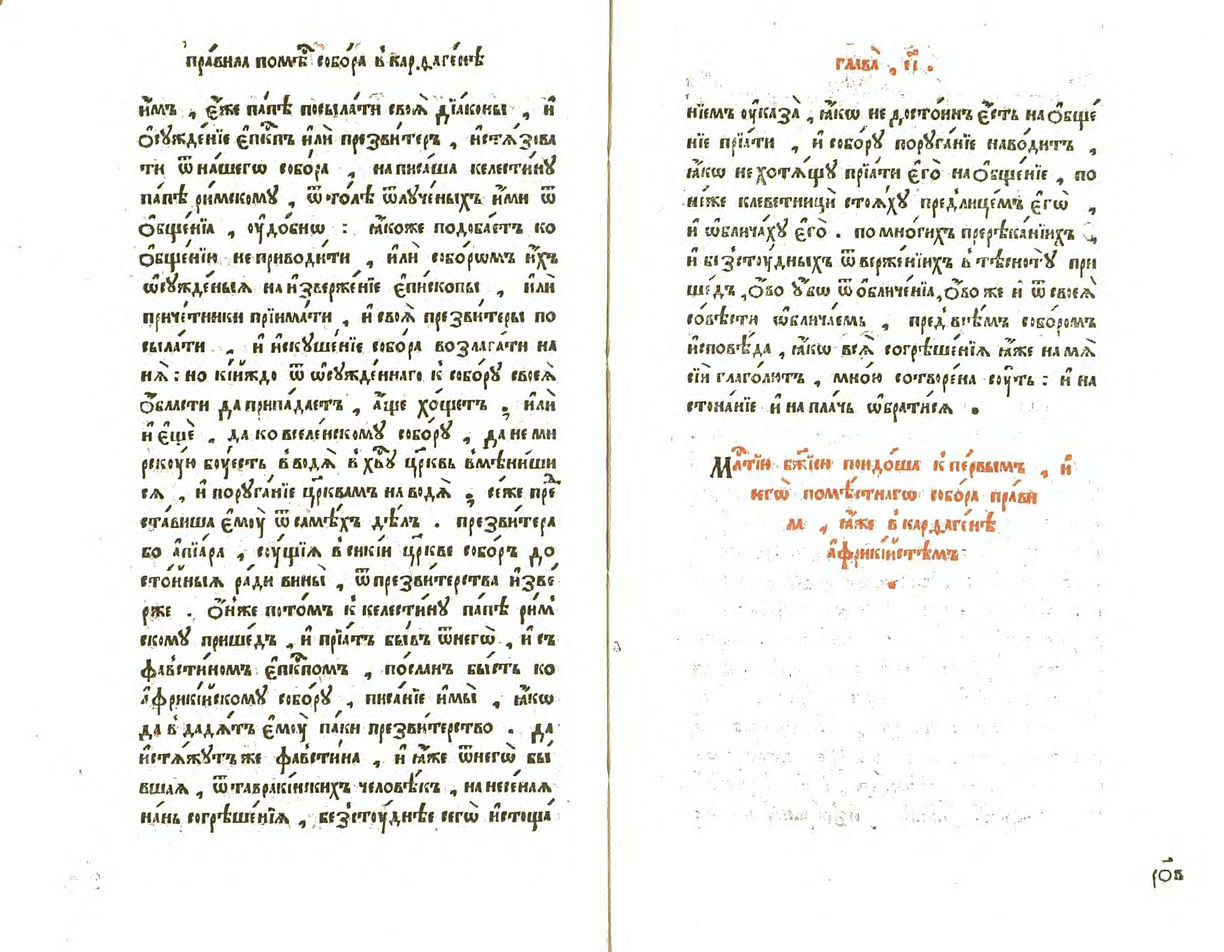 пра́вила помѣ́ⷭ собо́ра в̾кардаге́нѣ
и҆̀мъ , є҆́же па́пѣ посыла́ти своѧ̀ дїа́коны , и҆
ѻ҆сꙋжде́нїе є҆пⷭ҇кпъ и҆лѝ презви́теръ , и҆стѧзова
ти ѿна́шегѡ собо́ра , написа́ша келести́нꙋ
па́пѣ ри́мскомꙋ , ѿто́лѣ ѿлꙋ́ченыхъ и҆́ми ѿ
ѻ҆бще́нїа , оу҆до́бнѡ : ꙗ҆́коже подоба́етъ ко
ѻ҆бще́нїю неприводи́ти , и҆лѝ собо́рѡмъ и҆́хъ
ѡ҆сꙋжде́ныѧ наи҆зверже́нїе є҆пи́скопы , и҆лѝ
приче́тники прїима́ти , и҆ своѧ̀ презви́теры по
сыла́ти , и҆ и҆скꙋше́нїе собо́ра возлага́ти на
нѧ̀ : но кі́йждо ѿ ѡ҆сꙋжде́ннаго к̾ собо́рꙋ своеѧ̀
ѻ҆́бласти даприпа́даетъ , а҆́ще хо́щетъ , и҆лѝ
и҆ є҆щѐ , да ко вселе́нскомꙋ собо́рꙋ , да не ми
рскꙋ́ю бꙋ́есть в̾водѧ̀ в̾ хв҃ꙋ цр҃ковь вмѣни́ши
сѧ , и҆ порꙋга́нїе цр҃квамъ наводѧ̀ , се́же пре
ста́виша є҆моу̀ ѿса́мѣхъ дѣ́лъ . презви́тера
бо а҆пїа́ра , сꙋ́щїѧ в̾сикі́и цр҃кве собо́ръ до
сто́йныѧ ра́ди вины̀ , ѿпрезви́терства и҆зве́
рже . ѻ҆́нже пото́мъ к̾ келести́нꙋ па́пѣ ри́м
скомꙋ прише́дъ , и҆ прїѧ́тъ бы́въ ѿнегѡ̀ , и҆ съ
фаѵсти́номъ є҆пⷭ҇кпомъ , по́сланъ бы́сть ко
а҆фрикі́йскомꙋ собо́рꙋ , писа́нїе и҆мы̀ , ꙗ҆́кѡ
да в̾дадѧ́тъ є҆моу̀ па́ки презви́терство . да
и҆стѧ́жꙋтъ же фаѵсти́на , и҆ ꙗ҆́же ѿнегѡ̀ бы́
вшаѧ , ѿтавраки́нскихъ человѣ́къ , нанесе́наѧ
на́нь согрѣше́нїѧ , безстꙋ́днѣе сегѡ̀ и҆стоща́
глава̀ , є҃і .
нїемъ оу҆каза̀ , ꙗ҆́кѡ не досто́инъ є҆́сть на ѻ҆бще́
нїе прїѧ́ти , и҆ собо́рꙋ порꙋга́нїе наво́дитъ ,
ꙗ҆́кѡ не хотѧ́щꙋ прїѧ́ти є҆го̀ на ѻ҆бще́нїе , по
не́же клеветницы̀ стоѧ́хꙋ пред̾лице́мъ є҆гѡ̀ ,
и҆ ѡ҆блича́хꙋ є҆го̀ . помно́гихъ пререка́нїихъ ,
и҆ безстꙋ́дныхъ ѿверже́нїихъ в̾ тѣснотꙋ̀ при
ше́дъ , ѻ҆́во ᲂу҆́бѡ ѿѡ҆бличе́нїа , ѻ҆́во же и҆ ѿсвоеѧ̀
со́вѣсти ѡ҆блича́емь , предвсѣ́мъ собо́ромъ
и҆сповѣ́да , ꙗ҆́кѡ всѧ̀ согрѣше́нїѧ ꙗ҆́же намѧ̀
сїѝ глаго́лютъ , мно́ю сотворе́на сꙋ́ть : и҆ на
стона́нїе и҆ напла́чь ѡ҆брати́сѧ .
Млⷭ҇тїю бж҃їею поидо́ша к̾ пе́рвымъ , и҆
сегѡ̀ помѣ́стнагѡ собо́ра пра́ви
ла , ꙗ҆́же в̾кардаге́нѣ
а҆фрикі́йстѣмъ